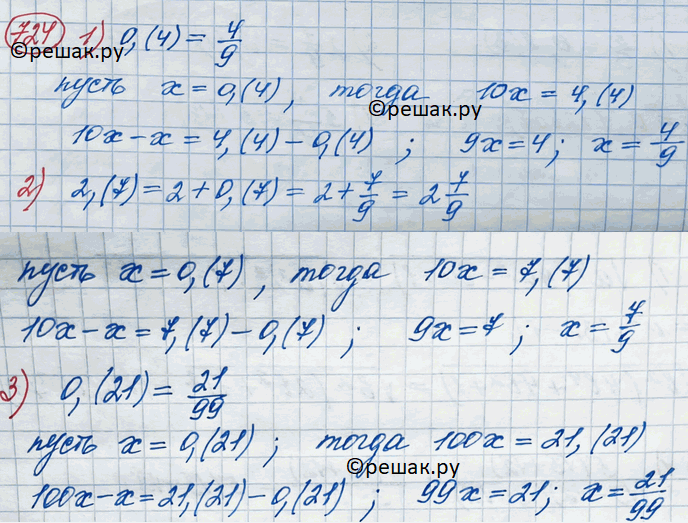 724) 1) 0,(4) = 4/9
©решак.ру
пусть x = 0,(4), тогда 10x = 4,(4)
©решак.ру
10x - x = 4,(4) - 0,(4) ; 9x = 4; x = 4/9
2) 2,(7) = 2 + 0,(7) = 2 + 7/9 = 2 7/9
пусть x = 0,(7), тогда 10x = 7,(7)
10x - x = 7,(7) - 0,(7) ; 9x = 7 ; x = 7/9
3) 0,(21) = 21/99
пусть x = 0,(21) ; тогда 100x = 21,(21)
©решак.ру
100x - x = 21,(21) - 0,(21) ; 99x = 21; x = 21/99